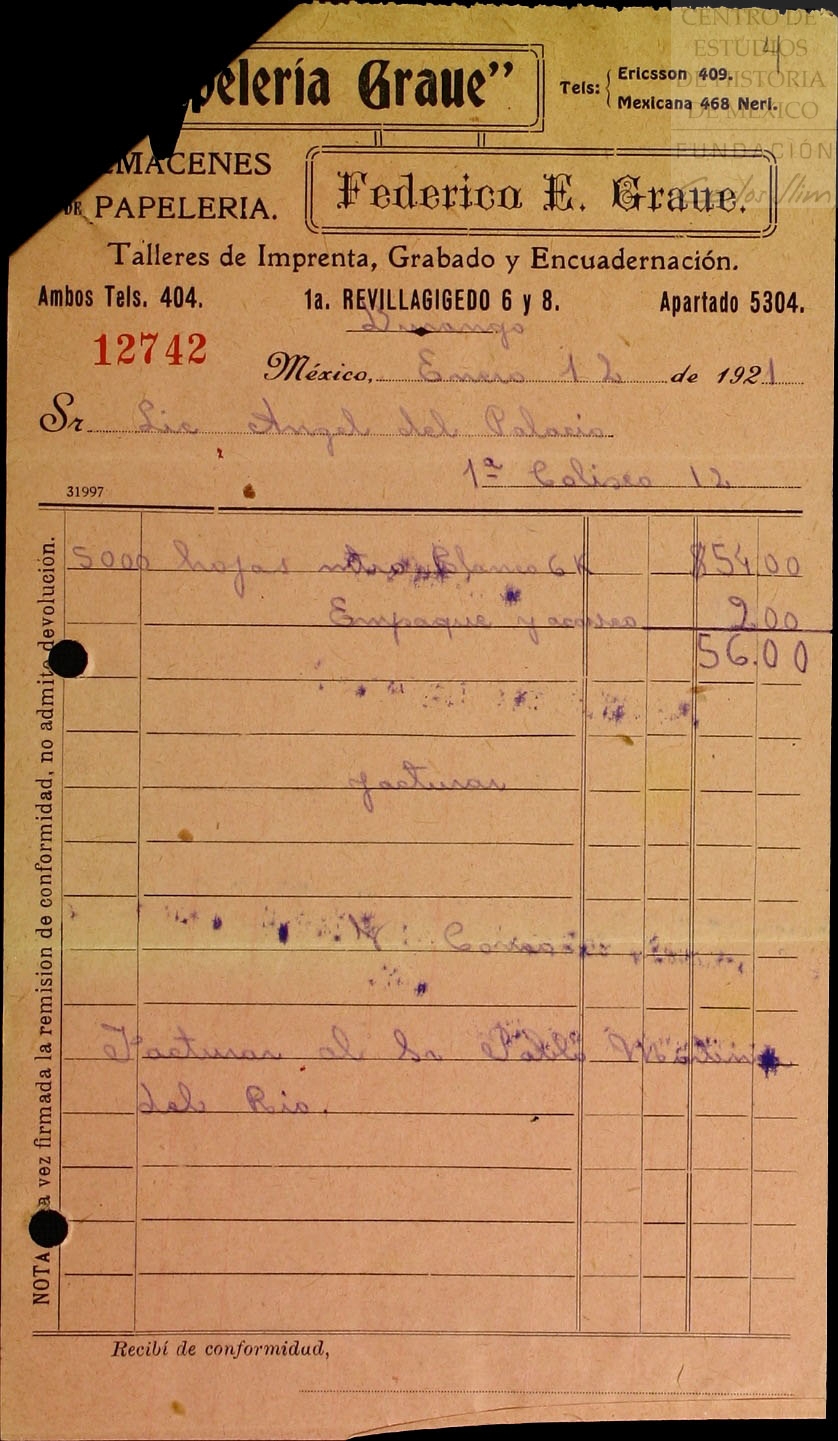 pelería Graue"
Tels: Ericsson 409.
Mexicana 468 Neri.
CENTRO DE
ESTUDIOS
DE HISTORIA
DE MEXICO
FUNDACIÓN
Carlos Slim
4
MACENES
DE PAPELERIA.
Federico E. Graue.
Talleres de Imprenta, Grabado y Encuadernación.
Ambos Tels. 404. 1a. REVILLAGIGEDO 6 y 8. Apartado 5304.
Durango
12742
México, Enero 12 de 1921
Sr Lic Angel del Palacio
1ª Coliseo 12
31997
5000 hojas blanco 6K $54.00
Empaque y acarreo 2.00
56.00
facturar
Facturar al Sr Pablo Martinez
del Rio.
NOTA a vez firmada la remision de conformidad, no admite devolución.
Recibí de conformidad,